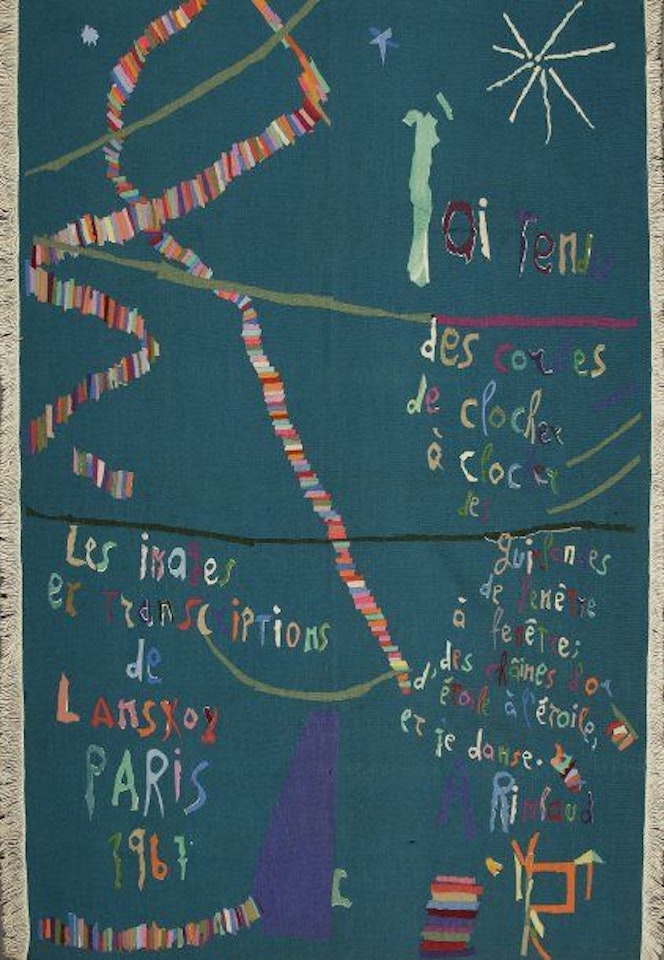 J'ai Tendu
des cordes
de clocher
à clocher
des
guirlandes
de fenêtre
à
fenêtre;
des chaînes d'or
d'étoile à l'étoile,
et je danse.
A Rimbaud
Les images
et Transcriptions
de
Lanskoy
PARIS
1967